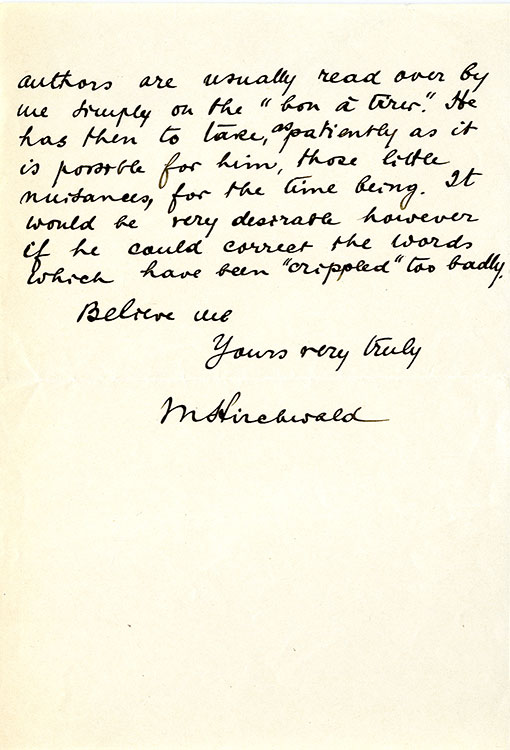 authors are usually read over by
me simply on the "bon à tirer". He
has then to take, as patiently as it
is possible for him, those little
nuisances, for the time being. It
would be very desirable however
if he could correct the words
which have been "crippled" too badly.
Believe me
Yours very truly
MHirchwald